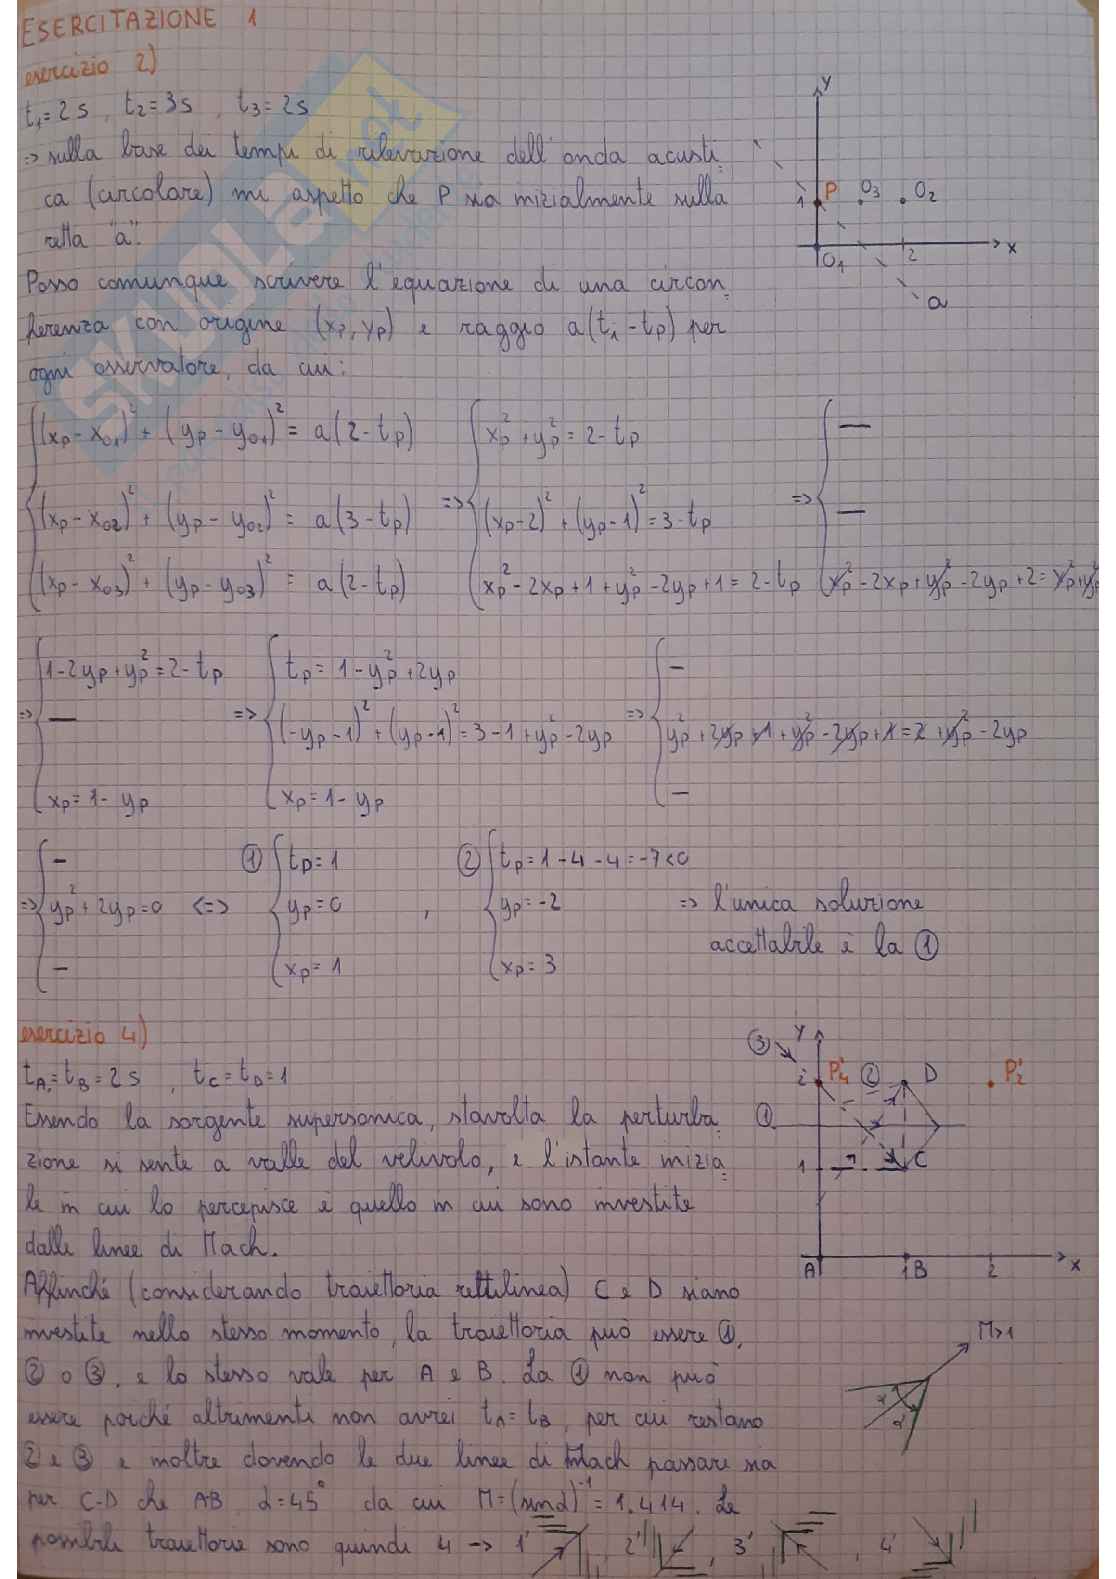 ESERCITAZIONE 1
esercizio 2)
t₁=2s , t₂=3s , t₃=2s
=> sulla base dei tempi di rilevazione dell'onda acusti
ca (circolare) mi aspetto che P sia inizialmente sulla
retta "a".
Posso comunque scrivere l'equazione di una circon
ferenza con origine (xp, yp) e raggio a(ti-tp) per
ogni osservatore, da cui:
y
1 P O₃ O₂
O₁ 2 x
a
(xp-xO1)² + (yp-yO1)² = a(2-tp)
xp²+yp²=2-tp
(xp-xO2)² + (yp-yO2)² = a(3-tp) => (xp-2)²+(yp-1)²=3-tp =>
(xp-xO3)² + (yp-yO3)² = a(2-tp)
xp²-2xp+1+yp²-2yp+1=2-tp
xp²-2xp+yp²-2yp+2=xp²+yp²
1-2yp+yp²=2-tp
tp=1-yp²+2yp
=> — => (-yp-1)²+(yp-1)²=3-1+yp²-2yp => yp²+2yp+1+yp²-2yp+1=2+yp²-2yp
xp=1-yp
xp=1-yp
=> yp²+2yp=0 <=>
① tp=1
yp=0 ,
xp=1
② tp=1-4-4=-7<0
yp=-2
xp=3
=> l'unica soluzione
accettabile è la ①
esercizio 4)
tA=tB=2s , tC=tD=1
Essendo la sorgente supersonica, stavolta la perturba
zione si sente a valle del velivolo, e l'istante inizia
le in cui lo percepisce è quello in cui sono investite
dalle linee di Mach.
Affinché (considerando traiettoria rettilinea) C e D siano
investite nello stesso momento, la traiettoria può essere ①,
② o ③, e lo stesso vale per A e B. La ① non può
essere poiché altrimenti non avrei tA=tB, per cui restano
② e ③ e inoltre dovendo le due linee di Mach passare sia
per C-D che AB, α=45° da cui M=(sinα)⁻¹=1.414. Le
possibili traiettorie sono quindi 4 -> 1' , 2' , 3' , 4'
③ y
2 P₄' ② D P₂'
①
1 C
A 1 B 2 x
M>1
α
α